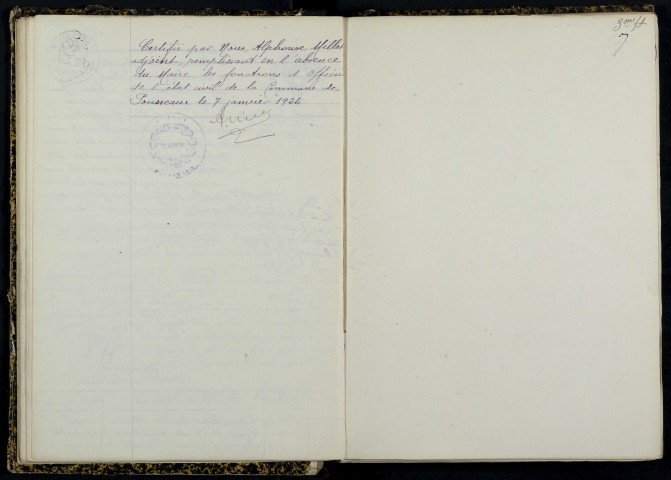 Certifié par Nous, Alphonse
adjoint, remplissant en l'absence
du Maire les fonctions d'officier
de l'état civil de la Commune de
Pousseaux le 7 janvier 1926
7